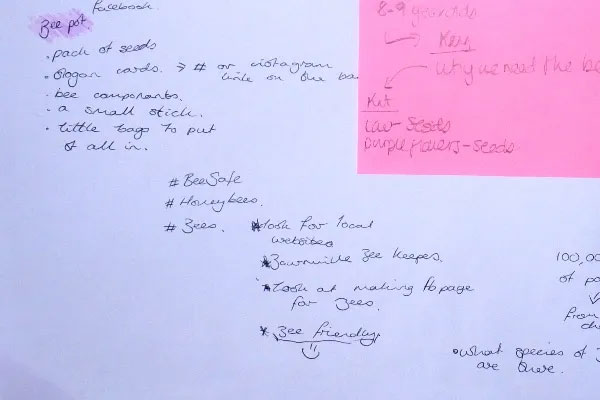 Facebook.
Bee pot
• pack of seeds
• slogan cards. → # or instagram
link on the ba
• bee components.
• a small stick.
• little bags to put
it all in.
8-9 year olds
Keny
why we need the be
Kit
Law Seeds
purple flowers - seeds
# BeeSafe
# Honeybees.
# Bees.
* look for local
websites
* Bournville Bee Keepes.
* Look at making fb page
for Bees.
* Bee friendly
100,00
of po
from
• what species of B
are there.